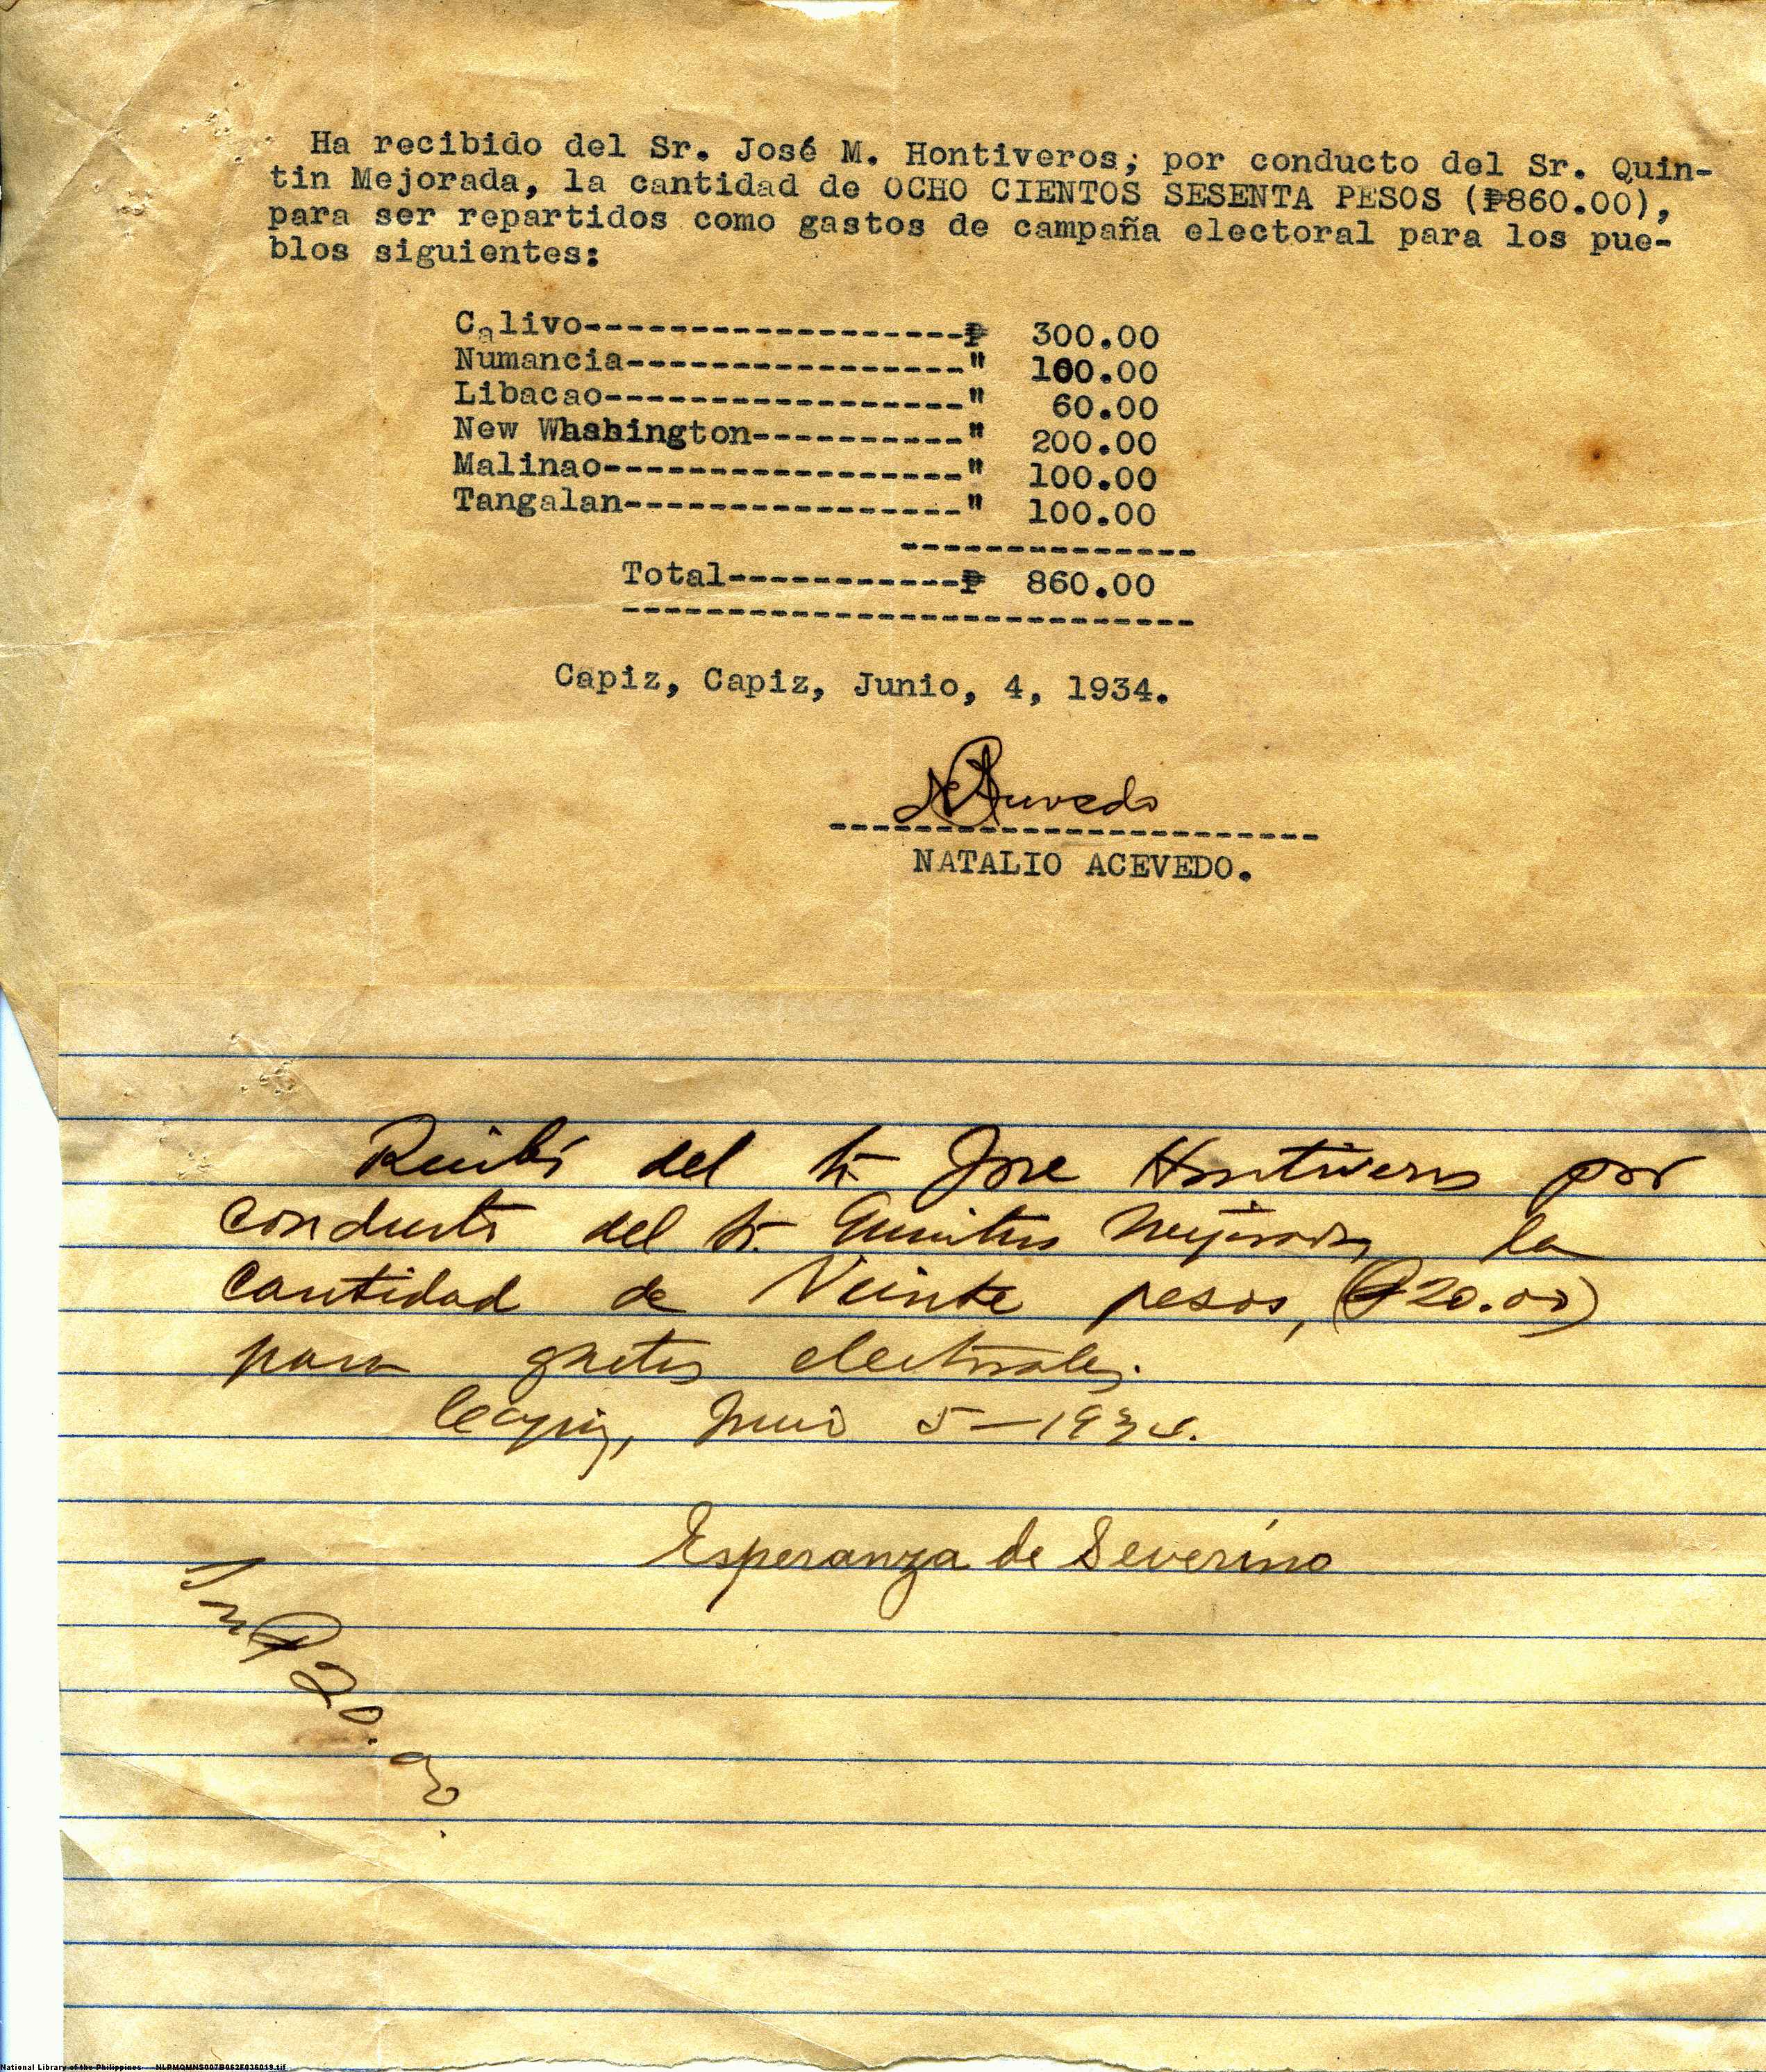 Ha recibido del Sr. José M. Hontiveros; por conducto del Sr. Quin-
tin Mejorada, la cantidad de OCHO CIENTOS SESENTA PESOS (₱860.00),
para ser repartidos como gastos de campaña electoral para los pue-
blos siguientes:
Calivo-----------------₱ 300.00
Numancia----------------" 100.00
Libacao-----------------" 60.00
New Washington----------" 200.00
Malinao-----------------" 100.00
Tangalan----------------" 100.00
--------------
Total-----------₱ 860.00
---------------------------
Capiz, Capiz, Junio, 4, 1934.
NAcevedo
-----------------------
NATALIO ACEVEDO.
Recibí del Sr Jose Hontiveros por
conducto del Sr. Quintin Mejorada, la
cantidad de Veinte pesos, (₱20.00)
para gastos electorales.
Capiz, Junio 5-1934.
Esperanza de Severino
₱20.00.
National Library of the Philippines NLPMQMNS007B053F036019.tif